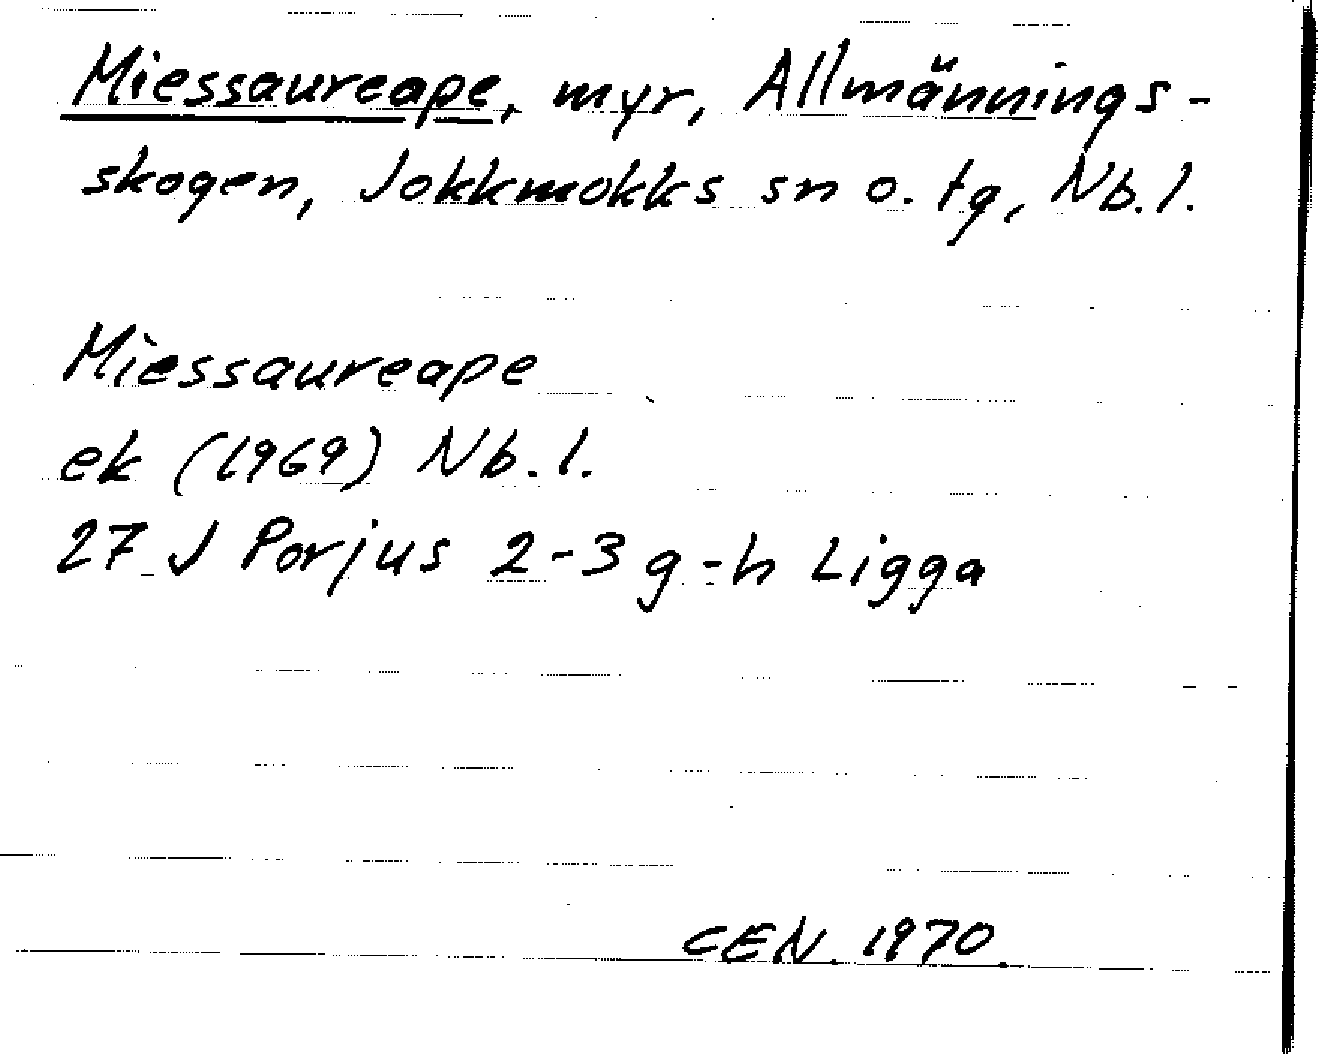 Miessaureape, myr, Allmännings-
skogen, Jokkmokks sn o. tg, Nb.l.
Miessaureape
ek (1969) Nb.l.
27 J Porjus 2-3 g-h Ligga
CEN. 1970.